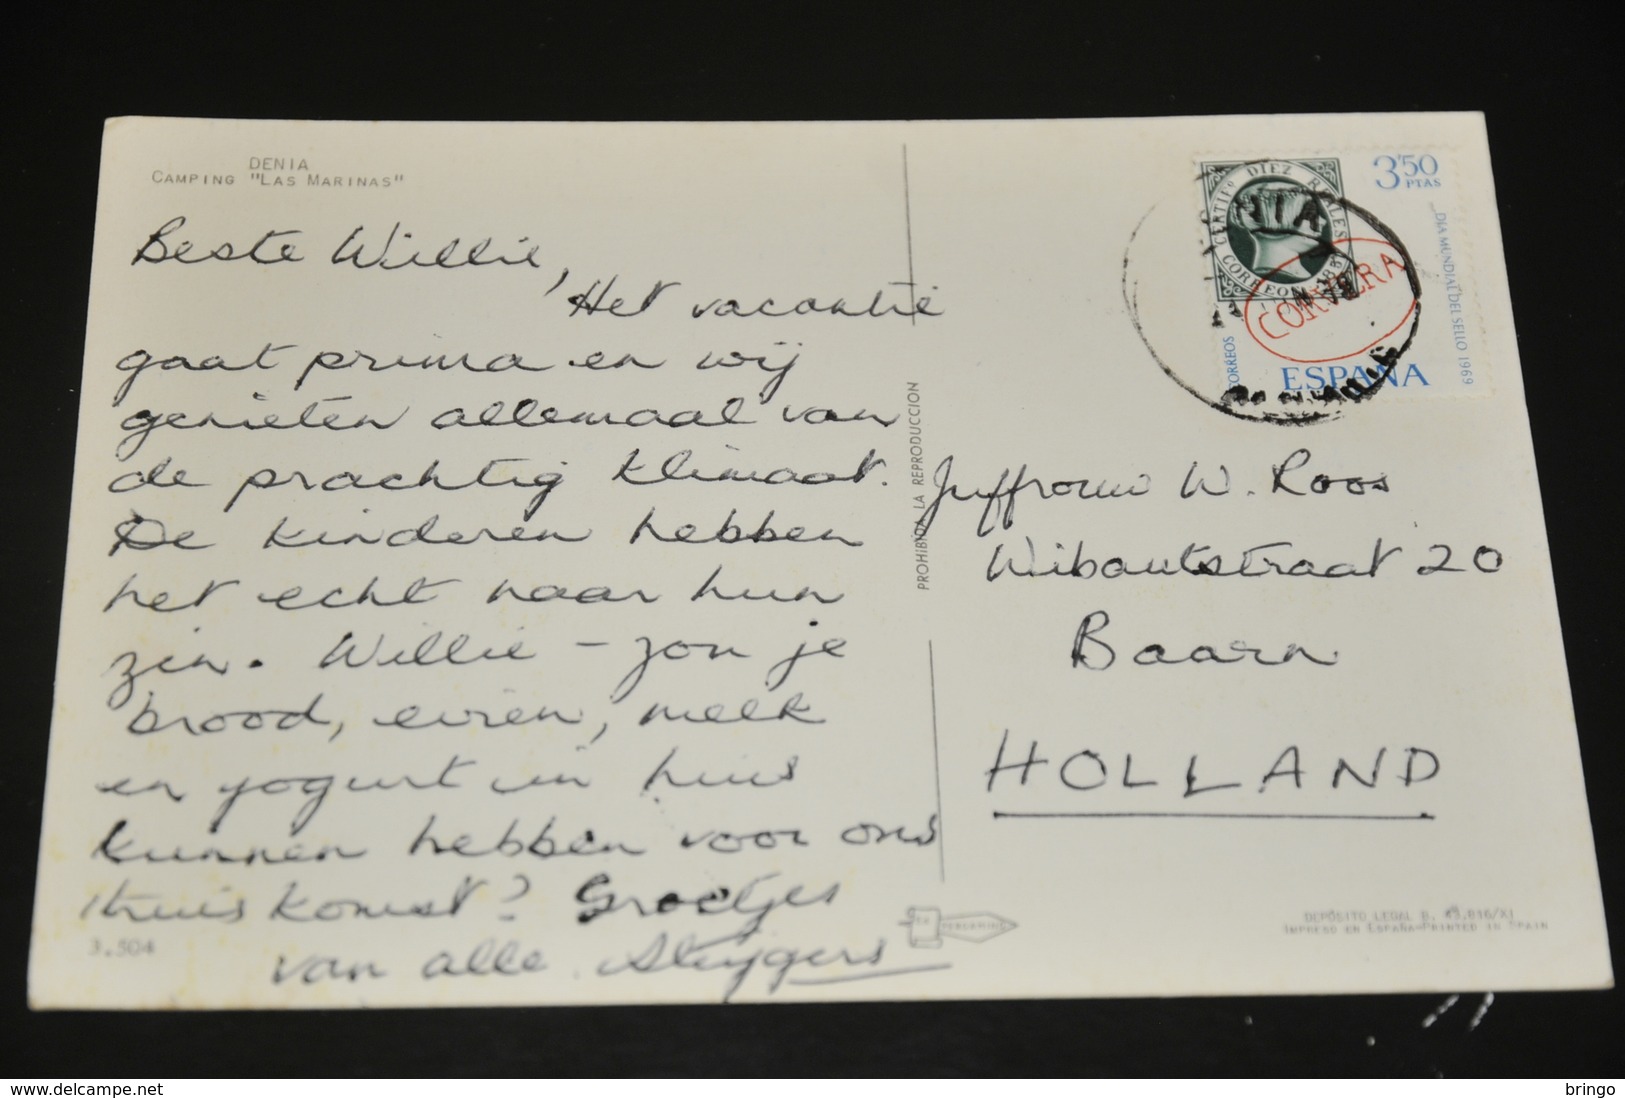 DENIA
CAMPING "LAS MARINAS"
Beste Willie,
Het vacantie
gaat prima en wij
genieten allemaal van
de prachtig klimaat.
De kinderen hebben
het echt naar hun
zin. Willie – zou je
brood, eieren, melk
en yogurt in huis
kunnen hebben voor ons
thuis komst? Groetjes
van alle Sluijgers
3.504
PROHIBIDA LA REPRODUCCION
3'50
PTAS
CERTIFº DIEZ REALES
CORREOS 1851
CORREOS
ESPAÑA
DIA MUNDIAL DEL SELLO 1969
CORRERA
Juffrouw W. Roos
Wibautstraat 20
Baarn
HOLLAND
DEPÓSITO LEGAL B. 43.816/XI
IMPRESO EN ESPAÑA-PRINTED IN SPAIN
http://www.delcampe.net
bringo